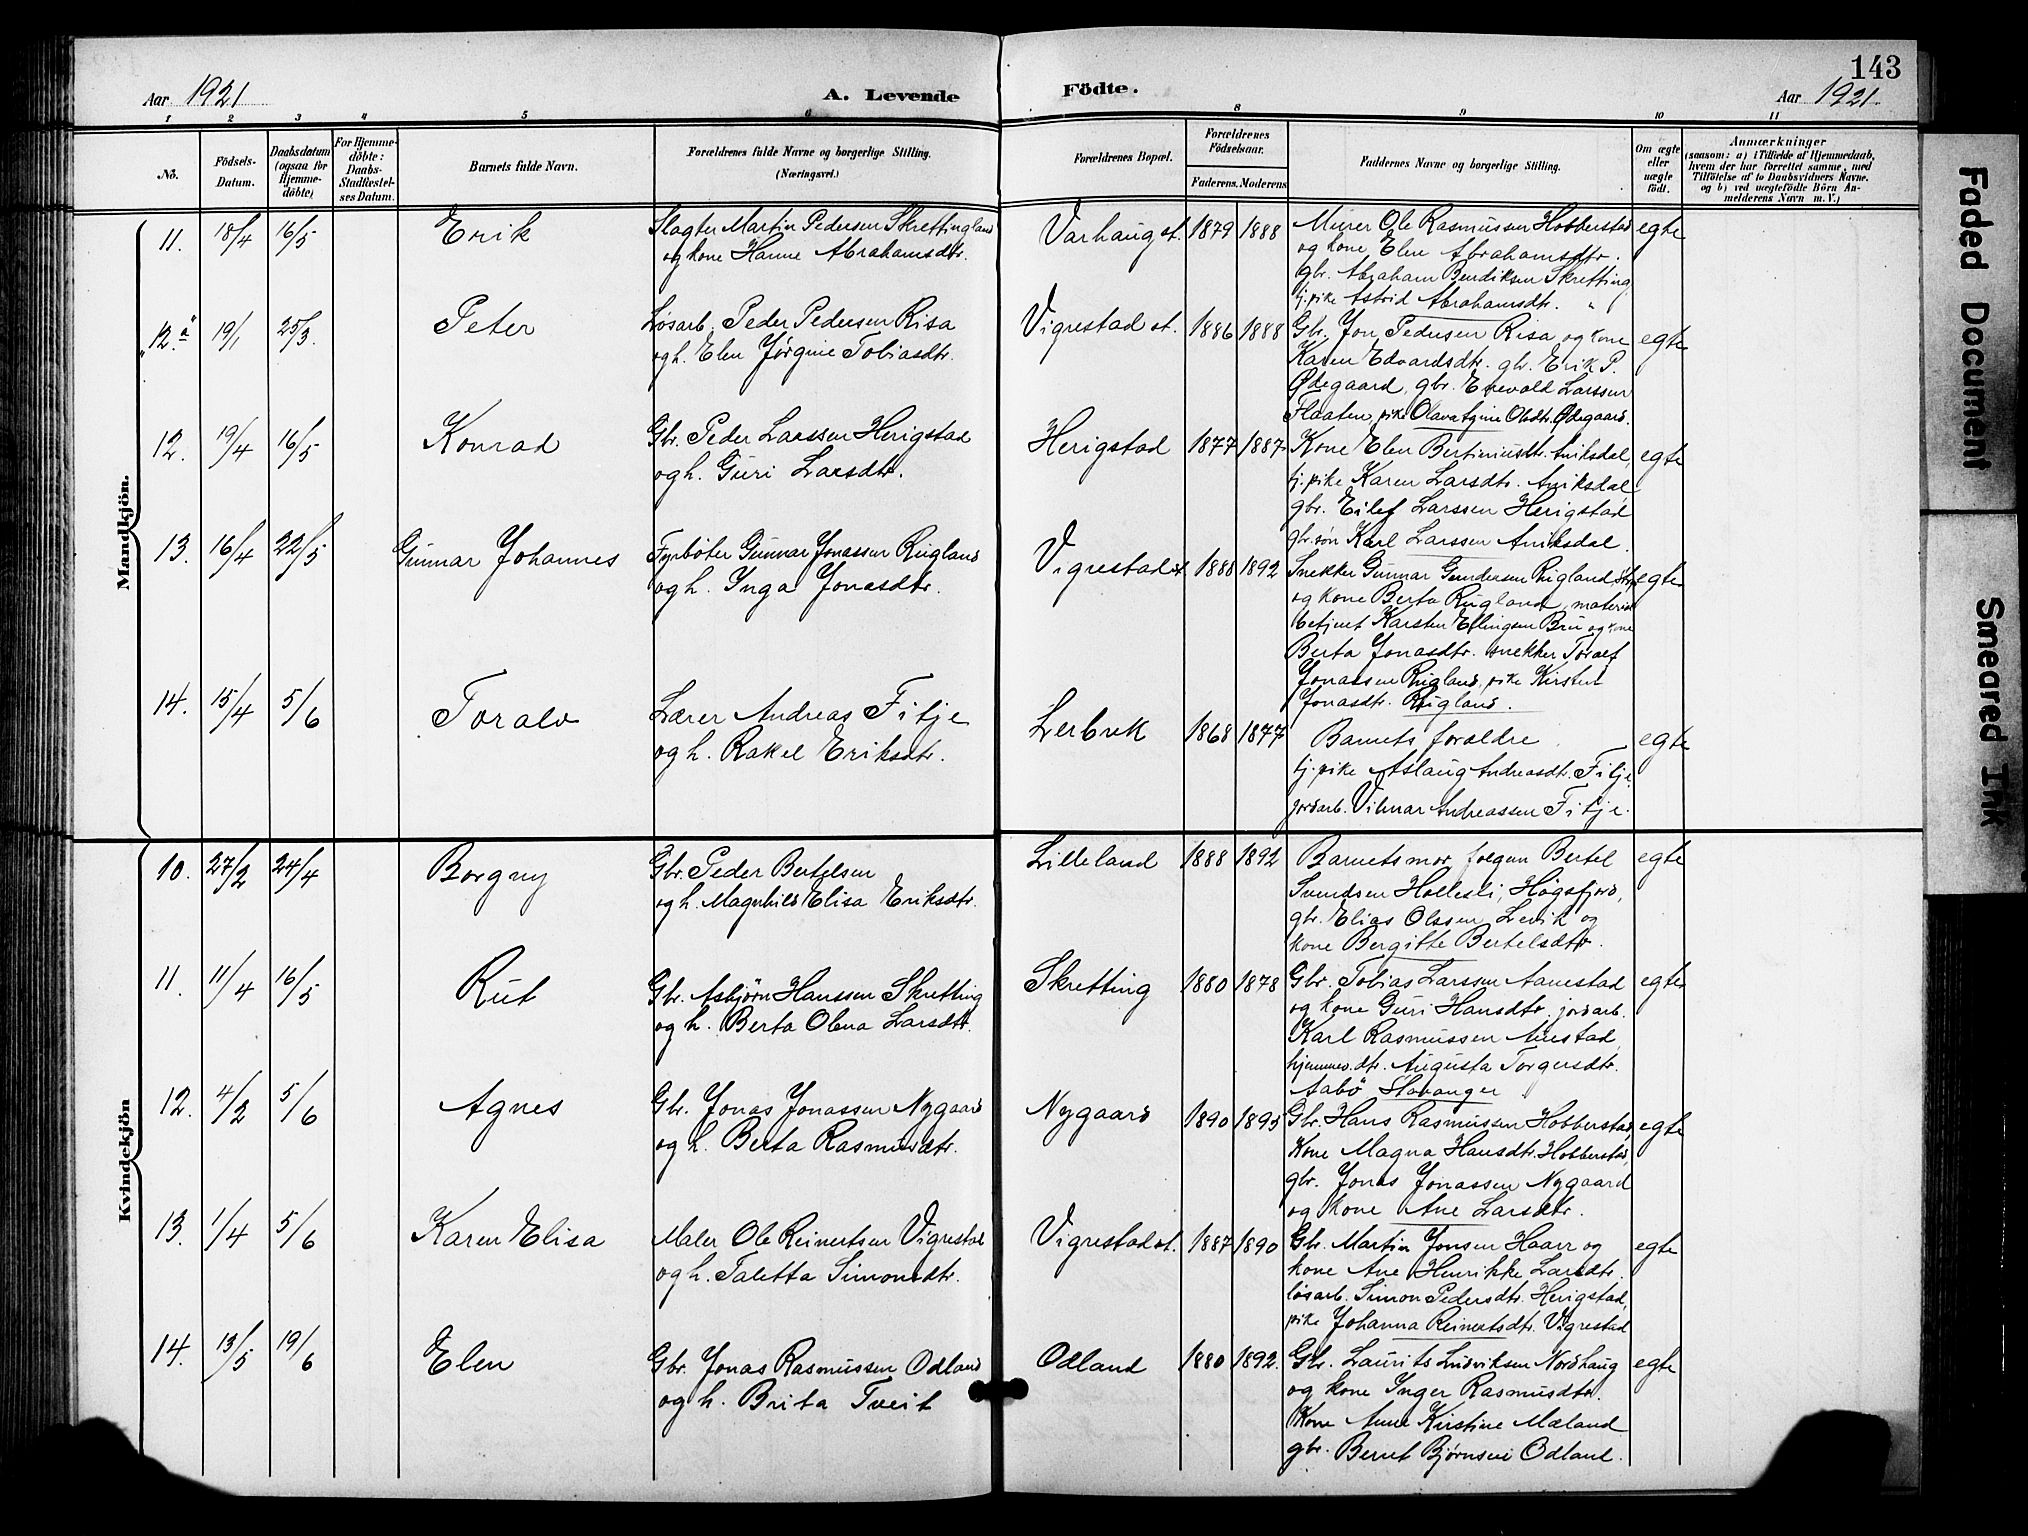 143
Aar 1921
A. Levende
Födte.
Aar 1921.
1 2 3 4 5 6 8 9 10 11
No.
Födsels-Datum.
Daabsdatum (ogsaa for Hjemme-döbte)
For Hjemme-döbte: Daabs-Stadfestel-ses Datum.
Barnets fulde Navn.
Forældrenes fulde Navne og borgerlige Stilling. (Næringsvei.)
Forældrenes Bopæl.
Forældrenes Födselsaar.
Faderens. Moderens
Faddernes Navne og borgerlige Stilling.
Om ægte eller uægte födt.
Anmærkninger
(saasom: a) i Tilfælde af Hjemmedaab, hvem der har forrettet samme, med Tilföielse af to Daabsvidners Navne, og b) ved uægtefödte Börn An-melderens Navn m. V.)
Mandkjön.
11. 18/4 16/5 Erik
Slagter Martin Pedersen Skrettingland
og kone Hanne Abrahamsdtr.
Varhaug st. 1879 1888
Murer Ole Rasmussen Hobberstad
og kone Elen Abrahamsdtr.
gbr. Abraham Bendiksen Skretting
tj.pike Astrid Abrahamsdtr. "
egte
"12.a" 19/1 25/3. Peter
Løsarb. Peder Pedersen Risa
og h. Elen Jørgine Tobiasdtr.
Vigrestad st. 1886 1888
Gbr. Jon Pedersen Risa og kone
Karen Edvardsdtr. gbr. Erik P.
Ødegaard, gbr. Enevald Larssen
Flaaten, pike Olava Olsdtr. Ødegaard.
egte
12. 19/4 16/5 Konrad
Gbr. Peder Larssen Herigstad
og h. Guri Larsdtr.
Herigstad 1877 1887
Kone Elen Bertiniusdtr. Aniksdal,
tj.pike Karen Larsdtr. Aniksdal
gbr. Eilef Larssen Herigstad
gbr.søn Karl Larssen Aniksdal.
egte
13. 16/4 22/5 Gunnar Johannes
Fyrbøter Gunnar Jonassen Rugland
og h. Inga Jonasdtr.
Vigrestad st 1888 1892
Snekker Gunnar Gundersen Rugland
og kone Berta Rugland, material
betjent Karsten Ellingsen Bru og kone
Berta Jonasdtr. snekker Toralf
Jonassen Rugland, pike Kirsten
Jonasdtr. Rugland.
egte
14. 15/4 5/6 Toralv
Lærer Andreas Fitje
og h. Rakel Eriksdtr.
Lerbrek 1868 1877
Barnets foreldre
tj.pike Aslaug Andreasdtr. Fitje
jordarb. Vilmar Andreassen Fitje.
egte
Kvindekjön
10. 27/2 24/4 Borgny
Gbr. Peder Bertelsen
og h. Magnhild Elisa Eriksdtr.
Lilleland 1888 1892
Barnets mor, Bertel
Svendsen Hollesli, Høgsfjord,
gbr. Elias Olssen Levik og
kone Bergitte Bertelsdtr.
egte
11. 11/4 16/5 Rut
Gbr. Asbjørn Hanssen Skretting
og h. Berta Olena Larsdtr.
Skretting 1880 1878
Gbr. Tobias Larssen Aanestad
og kone Guri Hansdtr. jordarb.
Karl Rasmussen Auestad,
hjemmev. dtr. Augusta Torgersdtr.
Aabø Stavanger
egte
12. 4/2 5/6 Agnes
Gbr. Jonas Jonassen Nygaard
og h. Berta Rasmusdtr.
Nygaard 1890 1895
Gbr. Hans Rasmussen Hobberstad,
kone Magna Hansdtr. Hobberstad,
gbr. Jonas Jonassen Nygaard
og kone Ane Larsdtr.
egte
13. 1/4 5/6 Karen Elisa
Maler Ole Reinertsen Vigrestad
og h. Taletta Simonsdtr.
Vigrestad st. 1887 1890
Gbr. Martin Jonsen Haarr og
kone Ane Henrikke Larsdtr.
løsarb. Simon Pedersdtr. Herigstad,
pike Johanna Reinertsdtr. Vigrestad
egte
14. 13/5 19/6 Elen
Gbr. Jonas Rasmussen Odland
og h. Brita Tveit
Odland 1880 1892.
Gbr. Laurits Ludviksen Nordhaug
og kone Inger Rasmusdtr.
Kone Anne Kirstine Mæland
gbr. Bernt Bjørnsen Odland.
egte
Faded Document
Smeared Ink